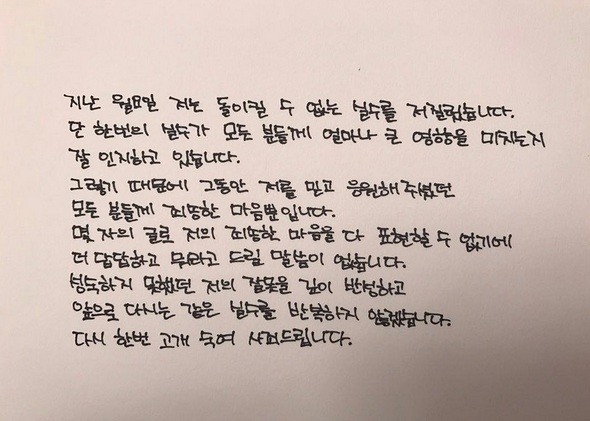 지난 월요일 저는 돌이킬 수 없는 실수를 저질렀습니다.
단 한번의 실수가 모든 분들께 얼마나 큰 영향을 미치는지
잘 인지하고 있습니다.
그렇기 때문에 그동안 저를 믿고 응원해주셨던
모든 분들께 죄송한 마음뿐입니다.
몇 자의 글로 저의 죄송한 마음을 다 표현할 수 없기에
더 답답하고 뭐라고 드릴 말씀이 없습니다.
성숙하지 못했던 저의 잘못을 깊이 반성하고
앞으로 다시는 같은 실수를 반복하지 않겠습니다.
다시 한번 고개 숙여 사죄드립니다.